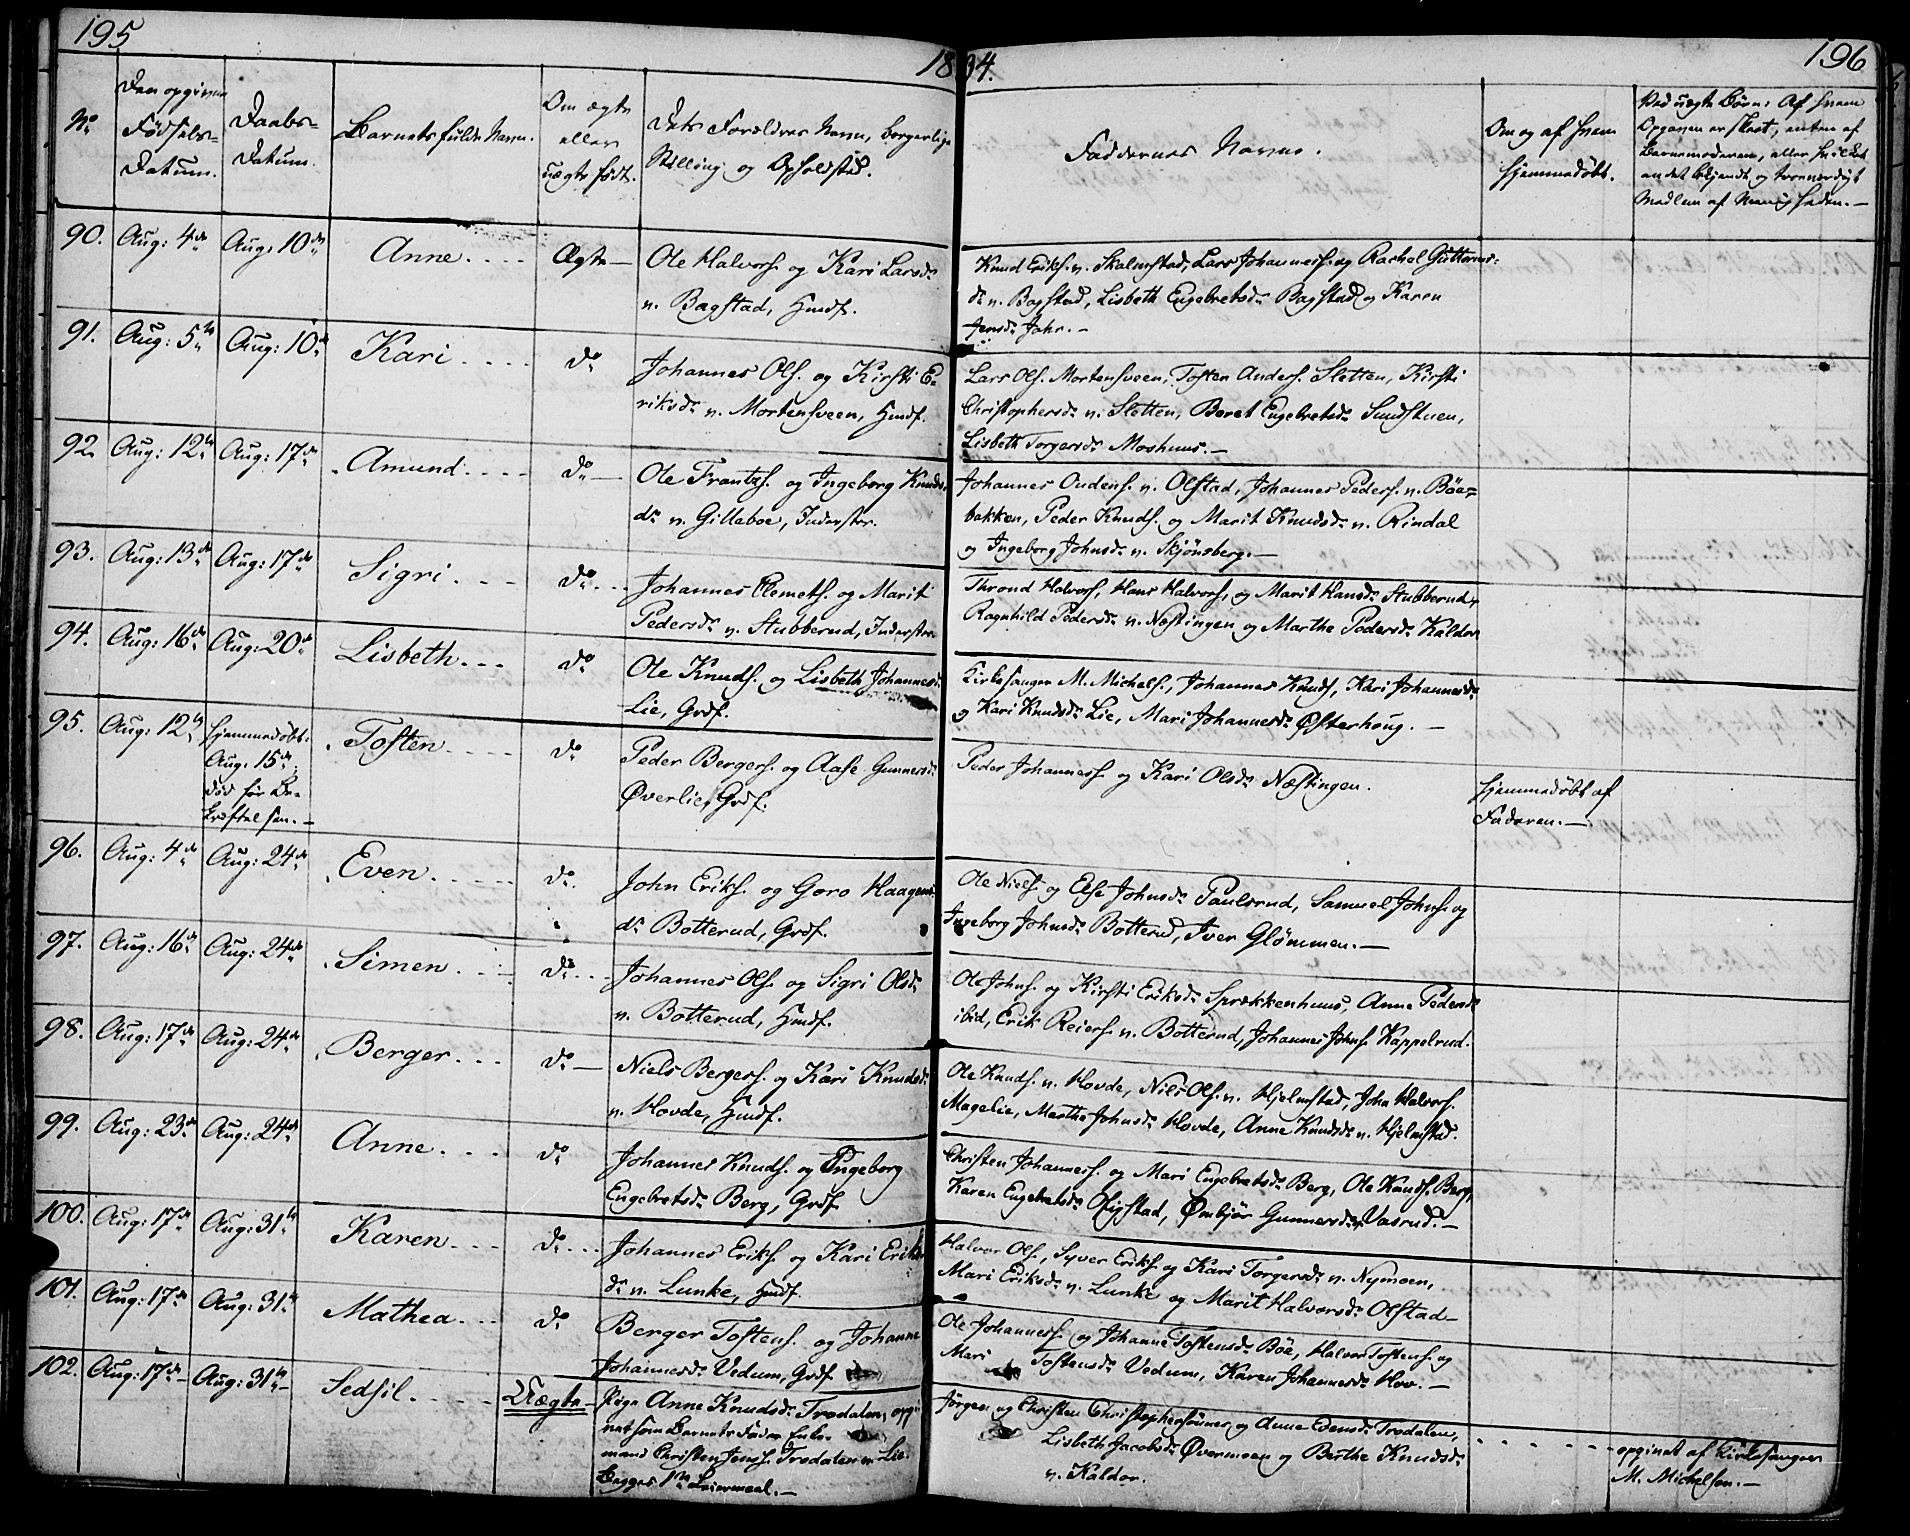 195
1834.
196
No
Den opgivne Fødsels-Datum.
Daabs-Datum.
Barnets fulde Navn.
Om ægte eller uægte født.
Dets Forældres Navn, borgerlige Stilling og Opholdsted.
Faddernes Navne.
Om og af hvem hjemmedøbt.
Ved uægte Børn: Af hvem Opgaven er skeet, enten af Barnemoderen, eller hvilket andet bekjendt og troværdigt Medlem af Menigheden.—
90. Aug: 4de Aug: 10de Anne.... Ægte— Ole Halvors. og Kari Larsdr
n. Bagstad, Hmdf.
Knud Eriks. n. Skalmstad, Lars Johanness. og Rachel Guttorms-
dr n. Bagstad, Lisbeth Engebretsdr Bagstad og Karen
Jensdr Jahr.—
91. Aug: 5te Aug: 10de Kari.... do Johannes Ols. og Kirsti E-
riksdr n. Mortensveen, Hmdf.
Lars Ols. Mortensveen, Tosten Anders. Sletten, Kirsti
Christophersdr n. Sletten, Beret Engebretsdr Sundstuen,
Lisbeth Torgersdr Moshuus.—
92. Aug: 12te Aug: 17de Amund.... do— Ole Frantz. og Ingeborg Knuds-
dr n. Gilleboe, Inderster.
Johannes Oudens. n. Olstad, Johannes Peders. n. Böe-
bakken, Peder Knuds. og Marit Knudsdr n. Rindal
og Ingeborg Johnsdr n. Skjönsberg.—
93. Aug: 13de Aug: 17de Sigri... do... Johannes Clemets. og Marit
Pedersdr n. Stubberud, Inderster.
Thrond Halvors., Hans Halvors., og Marit Hansdr Stubberud,
Ragnhild Pedersdr n. Næstingen og Marthe Pedersdr Kaldor
94. Aug: 16de Aug: 20de Lisbeth... do Ole Knuds. og Lisbeth Johannesdr
Lie, Grdf.
Kirkesanger M. Michels., Johannes Knuds., Kari Johannesdr
og Kari Knudsdr Lie, Mari Johannesdr Østerhoug.—
95. Aug: 12te Hjemmedöbt. Aug. 15de død før Be-kræftelsen.— Tosten.... do Peder Bergers. og Aase Gunnersdr
Øverlie, Grdf.
Peder Johanness. og Kari Olsdr Næstingen.
Hjemmedöbt af Faderen.—
96. Aug: 4de Aug: 24de Even.... do. John Eriks. og Goro Haagens-
dr Botterud, Grdf.
Ole Niels. og Else Johnsdr Paulsrud, Samuel Johns. og
Ingeborg Johnsdr Botterud, Iver Glömmen.—
97. Aug: 16de Aug: 24de Simen... do... Johannes Ols. og Sigri Olsdr
n. Botterud, Hmdf.
Ole Johns. og Kirsti Eriksdr Sprækkenhuus, Anne Pedersdr
ibid, Erik Reiers. n. Botterud, Johannes Johns. Kappelrud.
98. Aug: 17de Aug: 24de Berger... do— Niels Bergers. og Kari Knudsdr
n. Hovde, Hmdf.
Ole Knuds. n. Hovde, Nils Ols. n. Hjelmstad, John Halvors.
Magelie, Marthe Johnsdr Hovde, Anne Knudsdr n. Hjelmstad.
99. Aug: 23de Aug: 24de Anne... do Johannes Knuds. og Ingeborg
Engebretsdr Berg, Grdf.
Christen Johanness. og Mari Engebretsdr Berg, Ole Knuds. Berg,
Karen Engebretsdr Stigstad, Ømbjör Gunnersdr Vasrud.—
100. Aug: 17de Aug: 31te Karen... do... Johannes Eriks. og Kari Eriks-
dr n. Lunke, Hmdf.
Halvor Ols., Syver Eriks. og Kari Torgersdr n. Nymoen,
Mari Eriksdr n. Lunke og Marit Halvorsdr Olstad—
101. Aug: 17de Aug: 31te Mathea... do Berger Tostens. og Johanne
Johannesdr Vedum, Grdf.
Ole Johanness. og Johanne Tostensdr Böe, Halvor Tostens. og
Mari Tostensdr Vedum, Karen Johannesdr Hov.—
102. Aug: 17de— Aug: 31te— Sedsil.... Uægte— Pige Anne Knudsdr Trodalen, opgi-
vet som Barnets Fader Enke-
mand Christen Jens. Trodalen n. Lie.
Begges 1ste Leiermaal.—
Jørgen og Christen Christophersönner og Anne Evensdr Trodalen,
Lisbeth Jacobsdr Øvermoen og Berthe Knudsdr
n. Kaldor.
opgivet af Kirkesanger
M. Michelsen.—